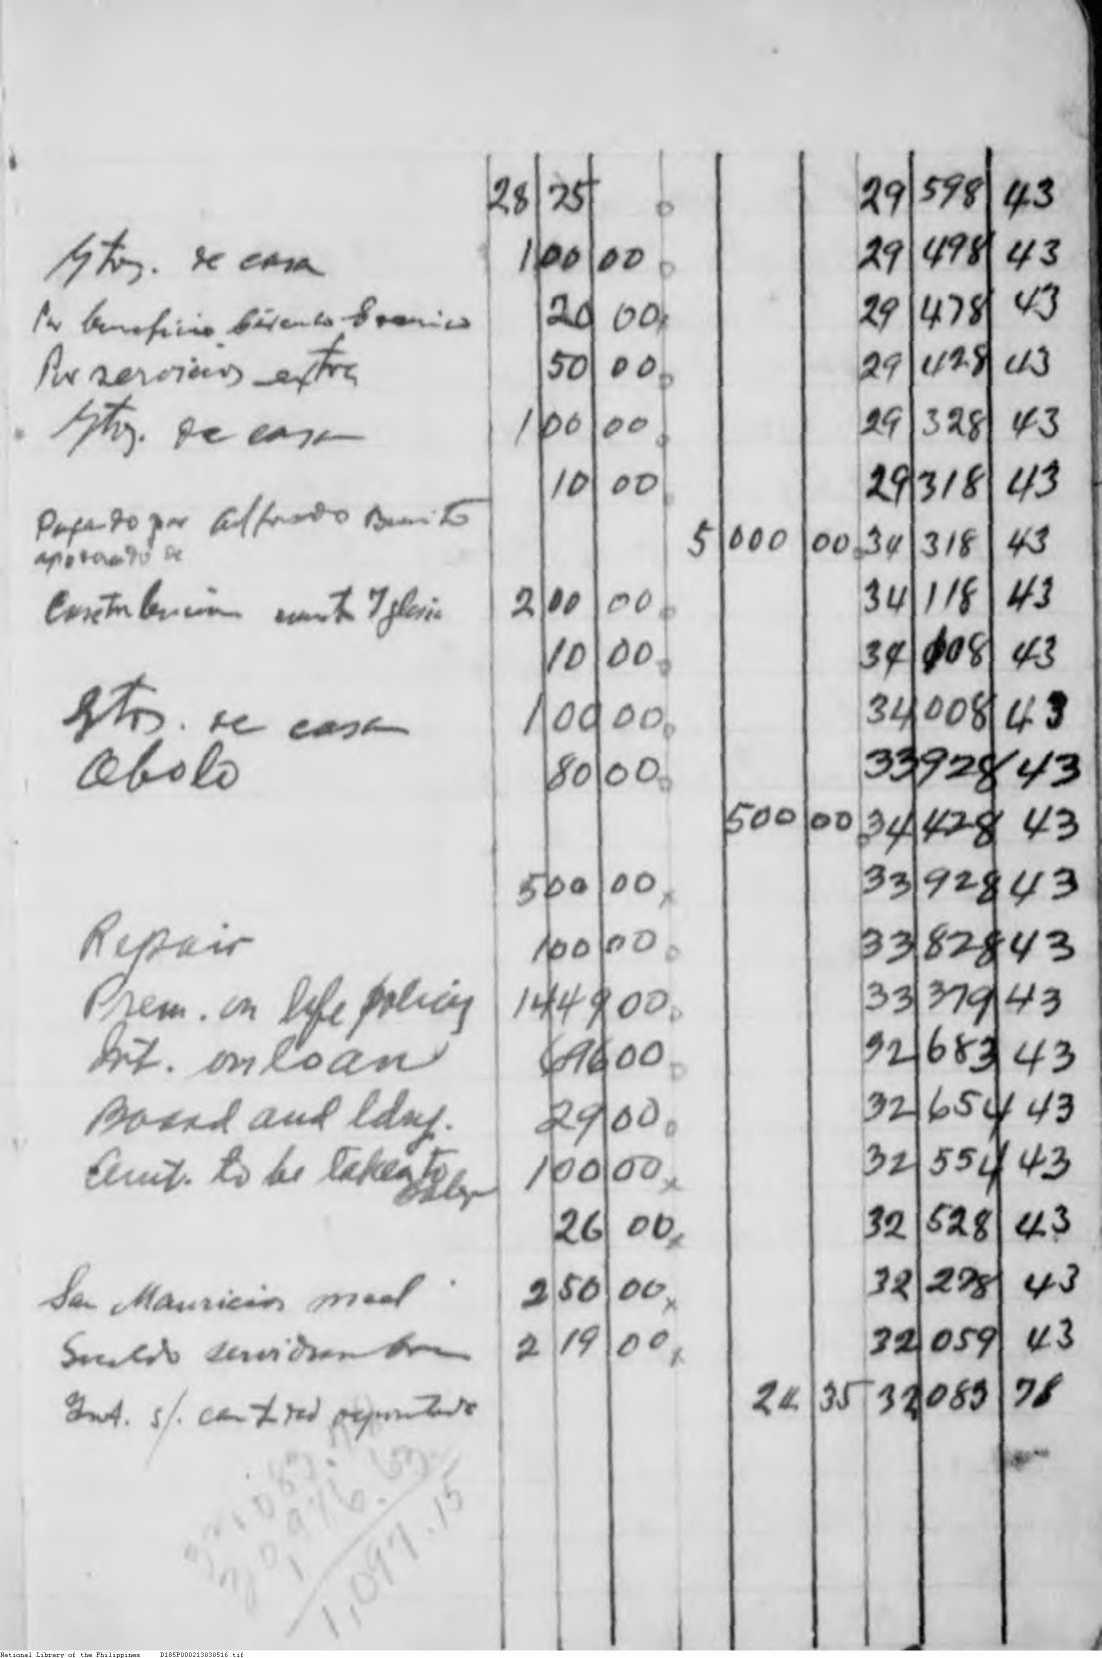 28 75 29 598 43
Gtos. de casa 100 00 29 498 43
Por beneficio 20 00 29 478 43
Por servicios extra 50 00 29 428 43
Gtos. de casa 100 00 29 328 43
10 00 29 318 43
Pagado por Alfredo Benito
5 000 00 34 318 43
200 00 34 118 43
10 00 34 108 43
Gtos. de casa 100 00 34 008 43
Obolo 80 00 33 928 43
500 00 34 428 43
500 00 33 928 43
Repair 100 00 33 828 43
Prem. on life policy 1 449 00 33 379 43
Int. on loan 696 00 32 683 43
Board and ldng. 29 00 32 654 43
Amt. to be taken to 100 00 32 554 43
26 00 32 528 43
San Mauricio 250 00 32 278 43
Sueldo servidumbre 219 00 32 059 43
Int. s/. cantidad depositada 24 35 32 083 78
1,097.15
National Library of the Philippines D185P000213030516.tif